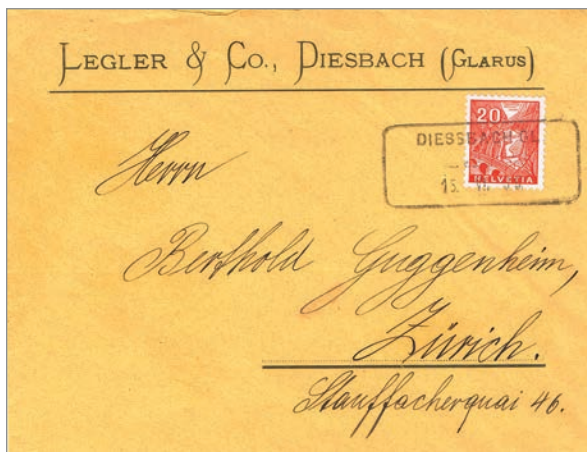 LEGLER & Co., DIESBACH (GLARUS)
20
DIESSBACH GL.
15.
HELVETIA
Herrn
Berthold Guggenheim,
Zürich.
Stauffacherquai 46.